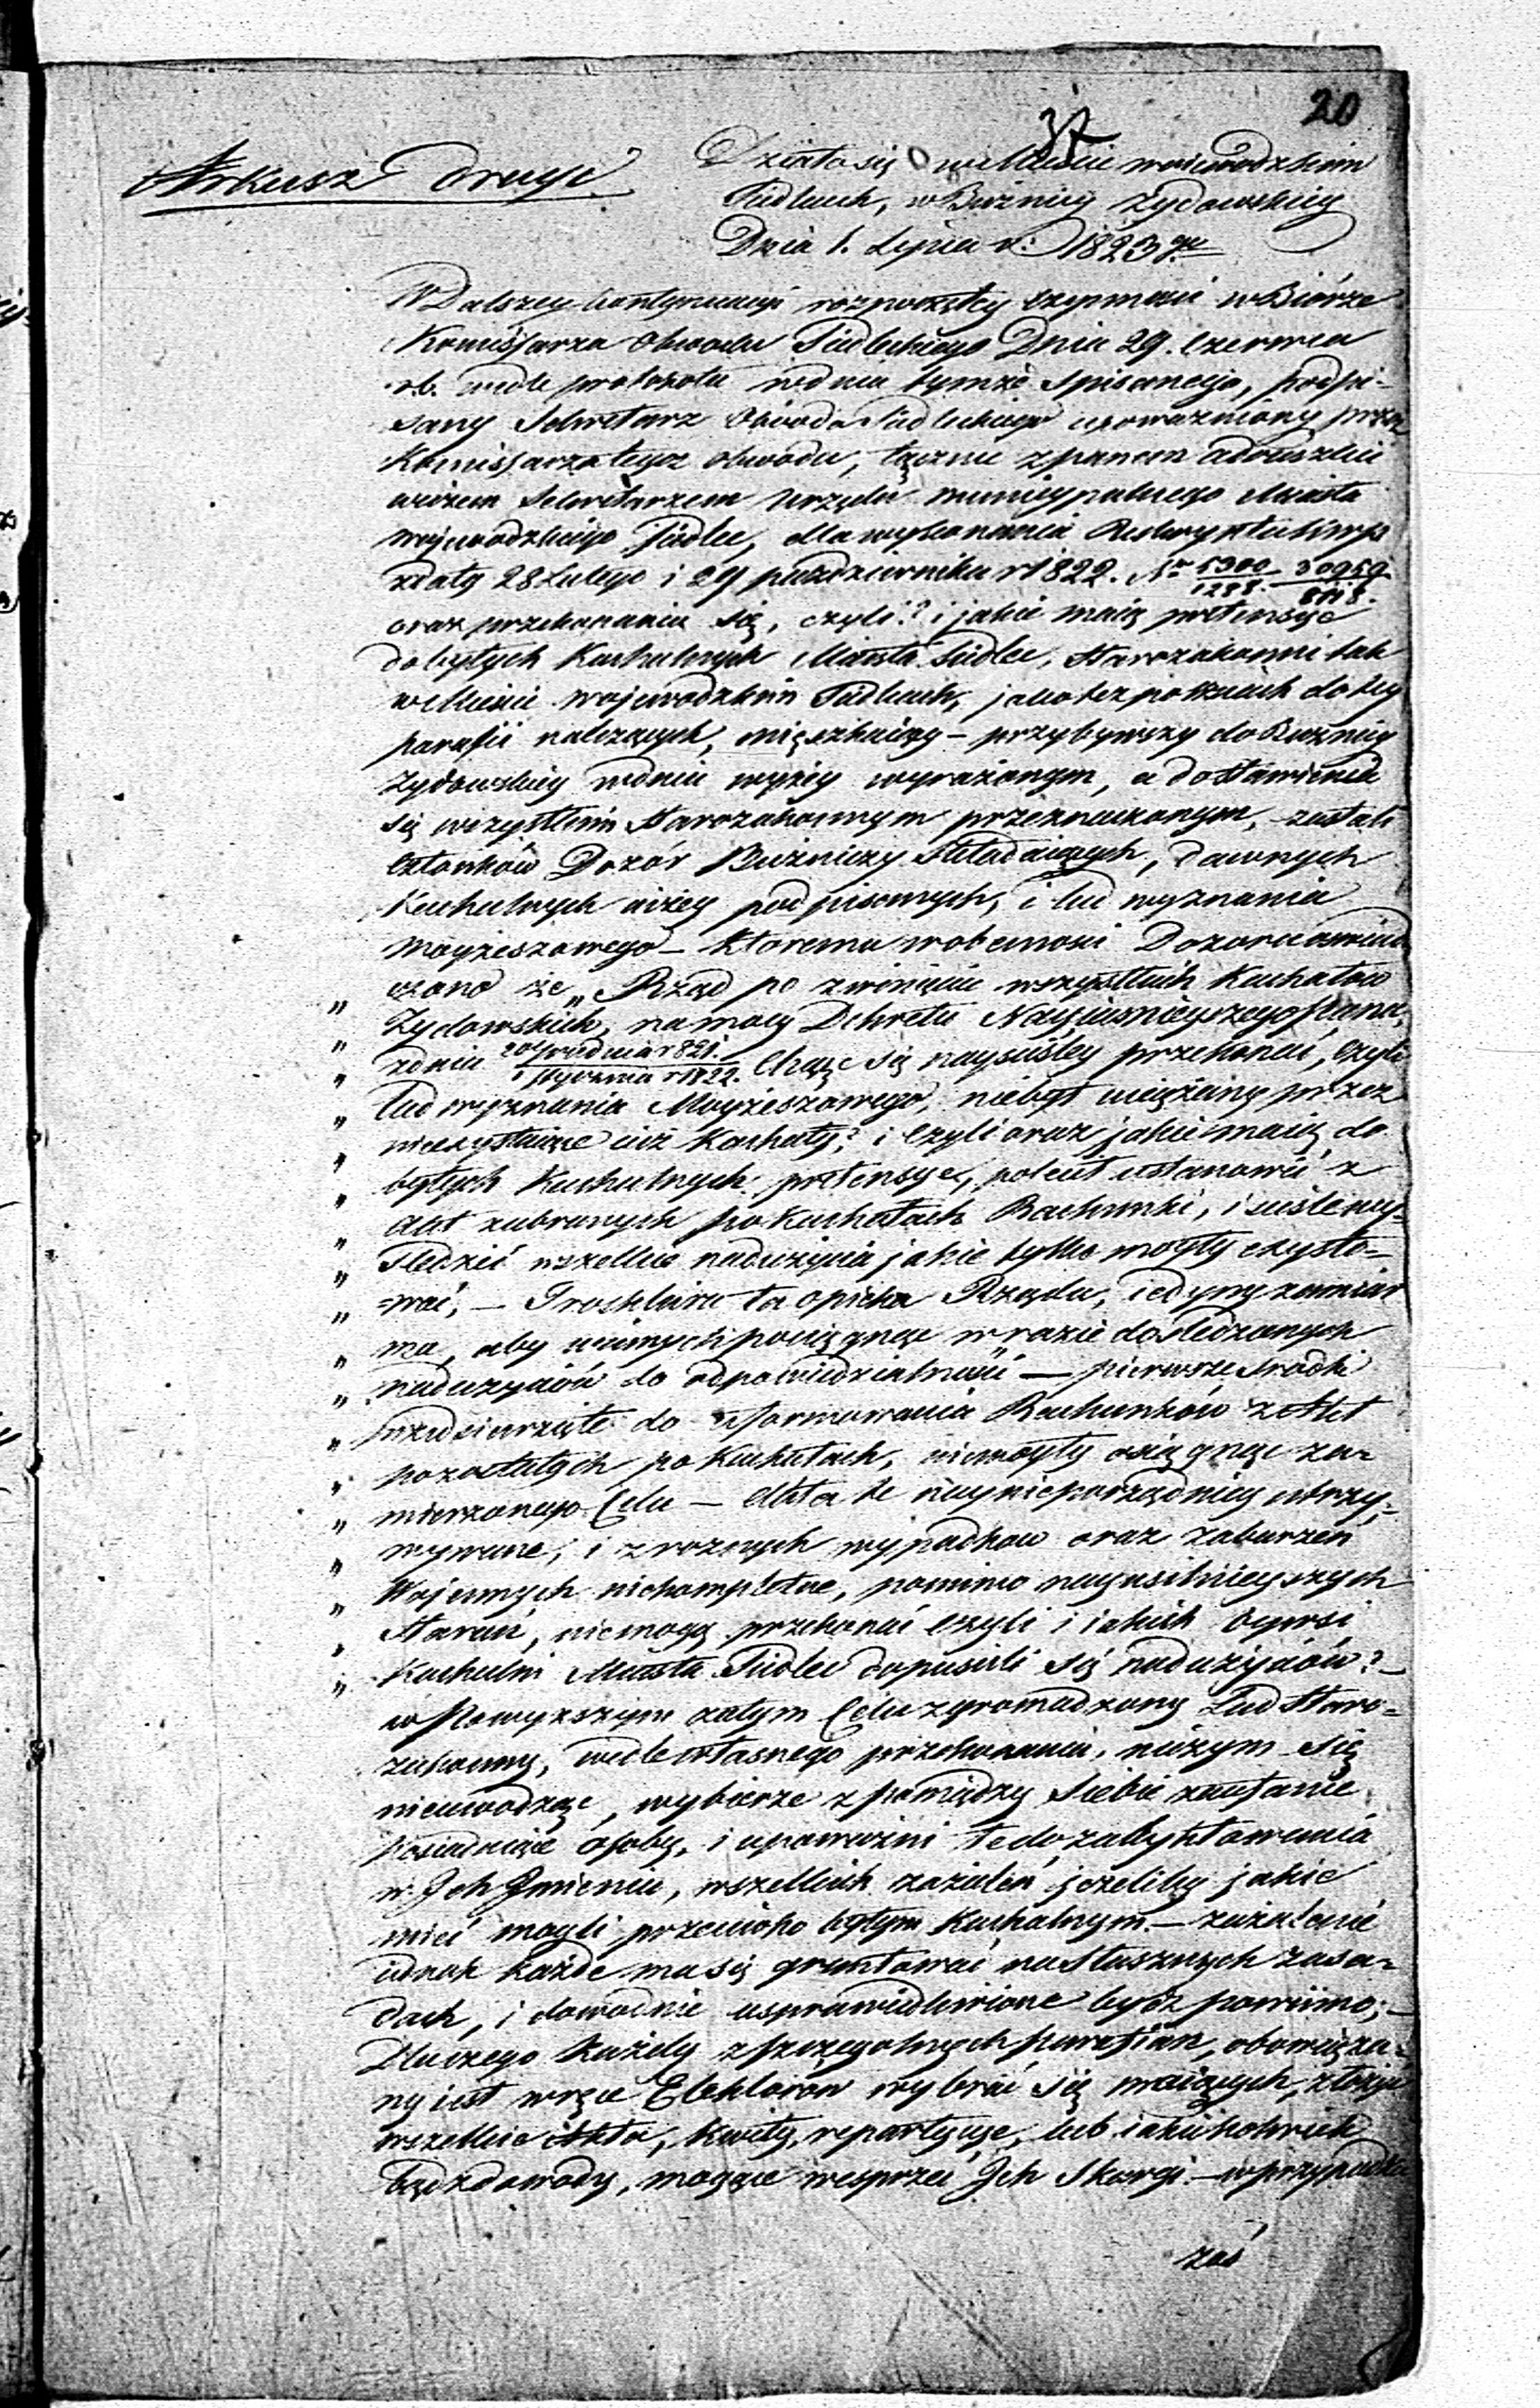 20
37
Arkusz drugi
Działo się w Mieście woiewodzkim
Siedlcach, w Bożnicy Żydowskiey
Dnia 1. Lipca r: 1823go
W Dalszey kontynuacyi rozpoczętey czynności w Biórze
Kommissarza Obwodu Siedleckiego Dnia 29. Czerwca
r.b. wedle protokołu w dniu tymże spisanego, podpi-
sany Sekretarz Obwodu Siedleckiego upoważniony przez
Kommissarza tegoż obwodu, łącznie z panem
Sekretarzem Urzędu municypalnego Miasta
wojewodzkiego Siedlec, dla wykonania Reskryptu
z daty 28 Lutego i 29 pazdziernika r 1822. Nr 5300 30959
1288. 8118.
oraz przekonania się, czyli? i jakie maią pretensye
do byłych Kachalnych Miasta Siedlec, Starozakonni tak
w Mieście wojewodzkim Siedlcach, jako też po wsiach do tey
parafii należących, mięszkaiący – przybywszy do Bożnicy
Żydowskiey w dniu wyżey wyrażonym, a do stawienia
się wszystkim Starozakonnym przeznaczonym, – zastali
Członków Dozór Bużniczy składaiących, dawnych
Kachalnych niżey podpisanych, i lud wyznania
Moyżeszowego – któremu w obecności Dozoru oswiad
„ czono że „ Rząd po zwinięciu wszystkich Kachałów
„ Żydowskich, na mocy Dekretu Nayjaśnieyszego Pana,
„ z dnia 20 Grudnia r 1821.
1 stycznia r 1822. Chcąc się nayściśley przekonać, czyli
„ lud wyznania Moyżeszowego, niebył uciążany przez
„ nieexystuiące iuż Kachały? i czyli oraz jakie maią do
„ byłych Kachalnych pretensye, polecił ustanowić z
„ akt zabranych po Kachałach Rachunki, i ściśle wy-
„ śledzić wszelkie nadużycia jakie tylko mogły exysto-
„ =wać, – Troskliwa ta opieka Rządu, iedyny zamiar
„ ma, aby winnych pociągnąć w razie dosledzonych
„ nadużyciów do odpowiedzialności – pierwsze środki
„ przedsięwzięte do uformowania Rachunków z Akt
„ pozostałych po Kachałach, niemogły osiągnąć za-
„ mierzonego Celu – Akta te naynieporządniey utrzy-
„ mywane, i z roznych wypadków oraz zaburzeń
„ Wojennych niekompletne, pomimo nayusilnieyszych
„ starań, niemogą przekonać czyli i iakich bywsi
„ Kachalni Miasta Siedlec dopuścili się nadużyciów? –
w Powyższym zatym Celu zgromadzony Lud Staro-
zakonny, wedle własnego przekonania, niczym się
nieuwodząc, wybierze z pomiędzy siebie zaufanie
posiadaiące osoby, i upoważni te do zadyktowania
w Ich Imieniu, wszelkich zażaleń jeżeliby jakie
mieć mogli przeciwko byłym Kachalnym – zażalenie
iednak każde ma się gruntować na słusznych zasa-
dach, i dowodnie usprawiedliwione bydź powinno; –
Dla czego każdy z szczegolnych parafian, obowiąza-
ny iest w ręce Elektorów wybrać się maiących, złożyć
wszelkie akta, kwity, repartycye, lub iakiekolwiek
bądź dowody, mogące wesprzeć Ich Skargi. – w przypadku
zaś